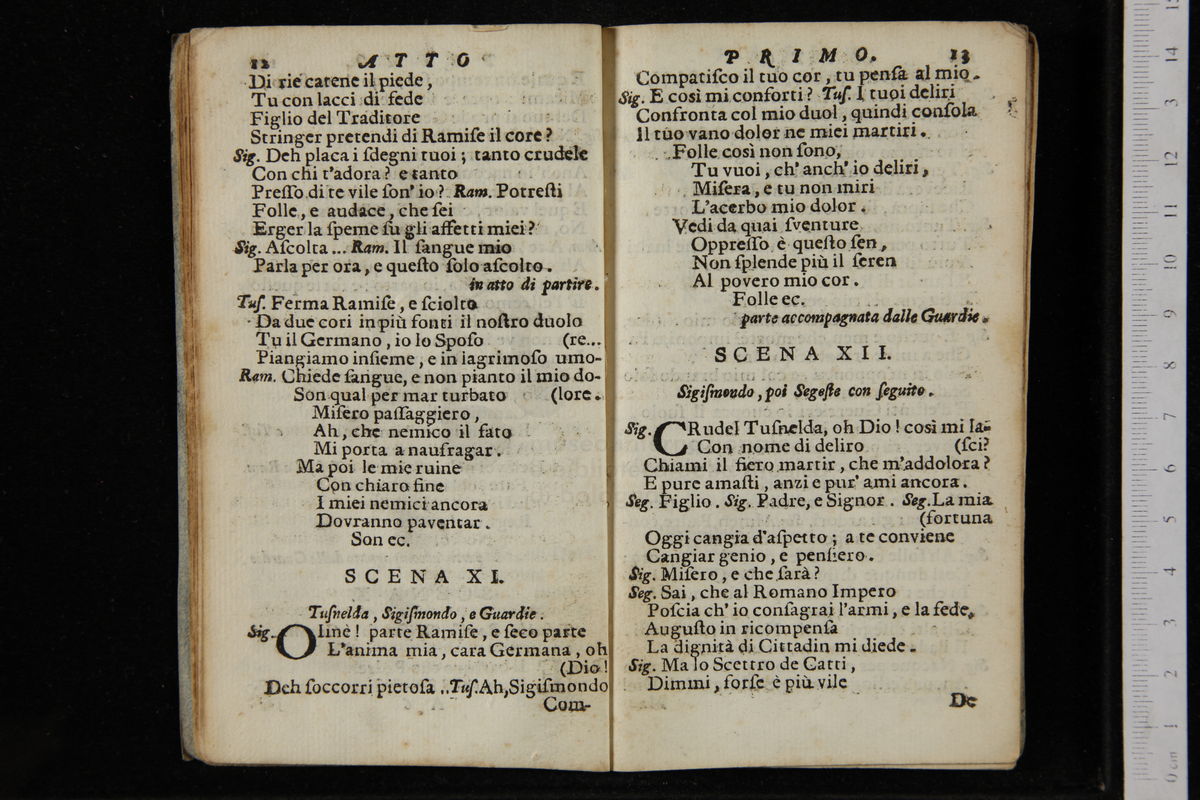 12 ATTO
Di rie catene il piede,
Tu con lacci di fede
Figlio del Traditore
Stringer pretendi di Ramiſe il core?
Sig. Deh placa i ſdegni tuoi; tanto crudele
Con chi t'adora? e tanto
Preſſo di te vile ſon' io? Ram. Potreſti
Folle, e audace, che ſei
Erger la ſpeme ſu gli affetti miei?
Sig. Aſcolta... Ram. Il ſangue mio
Parla per ora, e queſto ſolo aſcolto.
in atto di partire.
Tuſ. Ferma Ramiſe, e ſciolto
Da due cori in più fonti il noſtro duolo
Tu il Germano, io lo Spoſo (re...
Piangiamo inſieme, e in lagrimoſo umo-
Ram. Chiede ſangue, e non pianto il mio do-
Son qual per mar turbato (lore.
Miſero paſſaggiero,
Ah, che nemico il fato
Mi porta a naufragar.
Ma poi le mie ruine
Con chiaro fine
I miei nemici ancora
Dovranno paventar.
Son ec.
SCENA XI.
Tuſnelda, Sigiſmondo, e Guardie.
Sig. Oimè! parte Ramiſe, e ſeco parte
L'anima mia, cara Germana, oh
(Dio!
Deh ſoccorri pietoſa .. Tuſ. Ah, Sigiſmondo
Com-
PRIMO. 13
Compatiſco il tuo cor, tu penſa al mio.
Sig. E così mi conforti? Tuſ. I tuoi deliri
Confronta col mio duol, quindi conſola
Il tuo vano dolor ne miei martiri.
Folle così non ſono,
Tu vuoi, ch' anch' io deliri,
Miſera, e tu non miri
L'acerbo mio dolor.
Vedi da quai ſventure
Oppreſſo è queſto ſen,
Non ſplende più il ſeren
Al povero mio cor.
Folle ec.
parte accompagnata dalle Guardie.
SCENA XII.
Sigiſmondo, poi Segeſte con ſeguito.
Sig. CRudel Tuſnelda, oh Dio! così mi la-
Con nome di deliro (ſci?
Chiami il fiero martir, che m'addolora?
E pure amaſti, anzi e pur' ami ancora.
Seg. Figlio. Sig. Padre, e Signor. Seg. La mia
(fortuna
Oggi cangia d'aſpetto; a te conviene
Cangiar genio, e penſiero.
Sig. Miſero, e che ſarà?
Seg. Sai, che al Romano Impero
Poſcia ch' io conſagrai l'armi, e la fede,
Auguſto in ricompenſa
La dignità di Cittadin mi diede.
Sig. Ma lo Scettro de Catti,
Dimmi, forſe è più vile
De